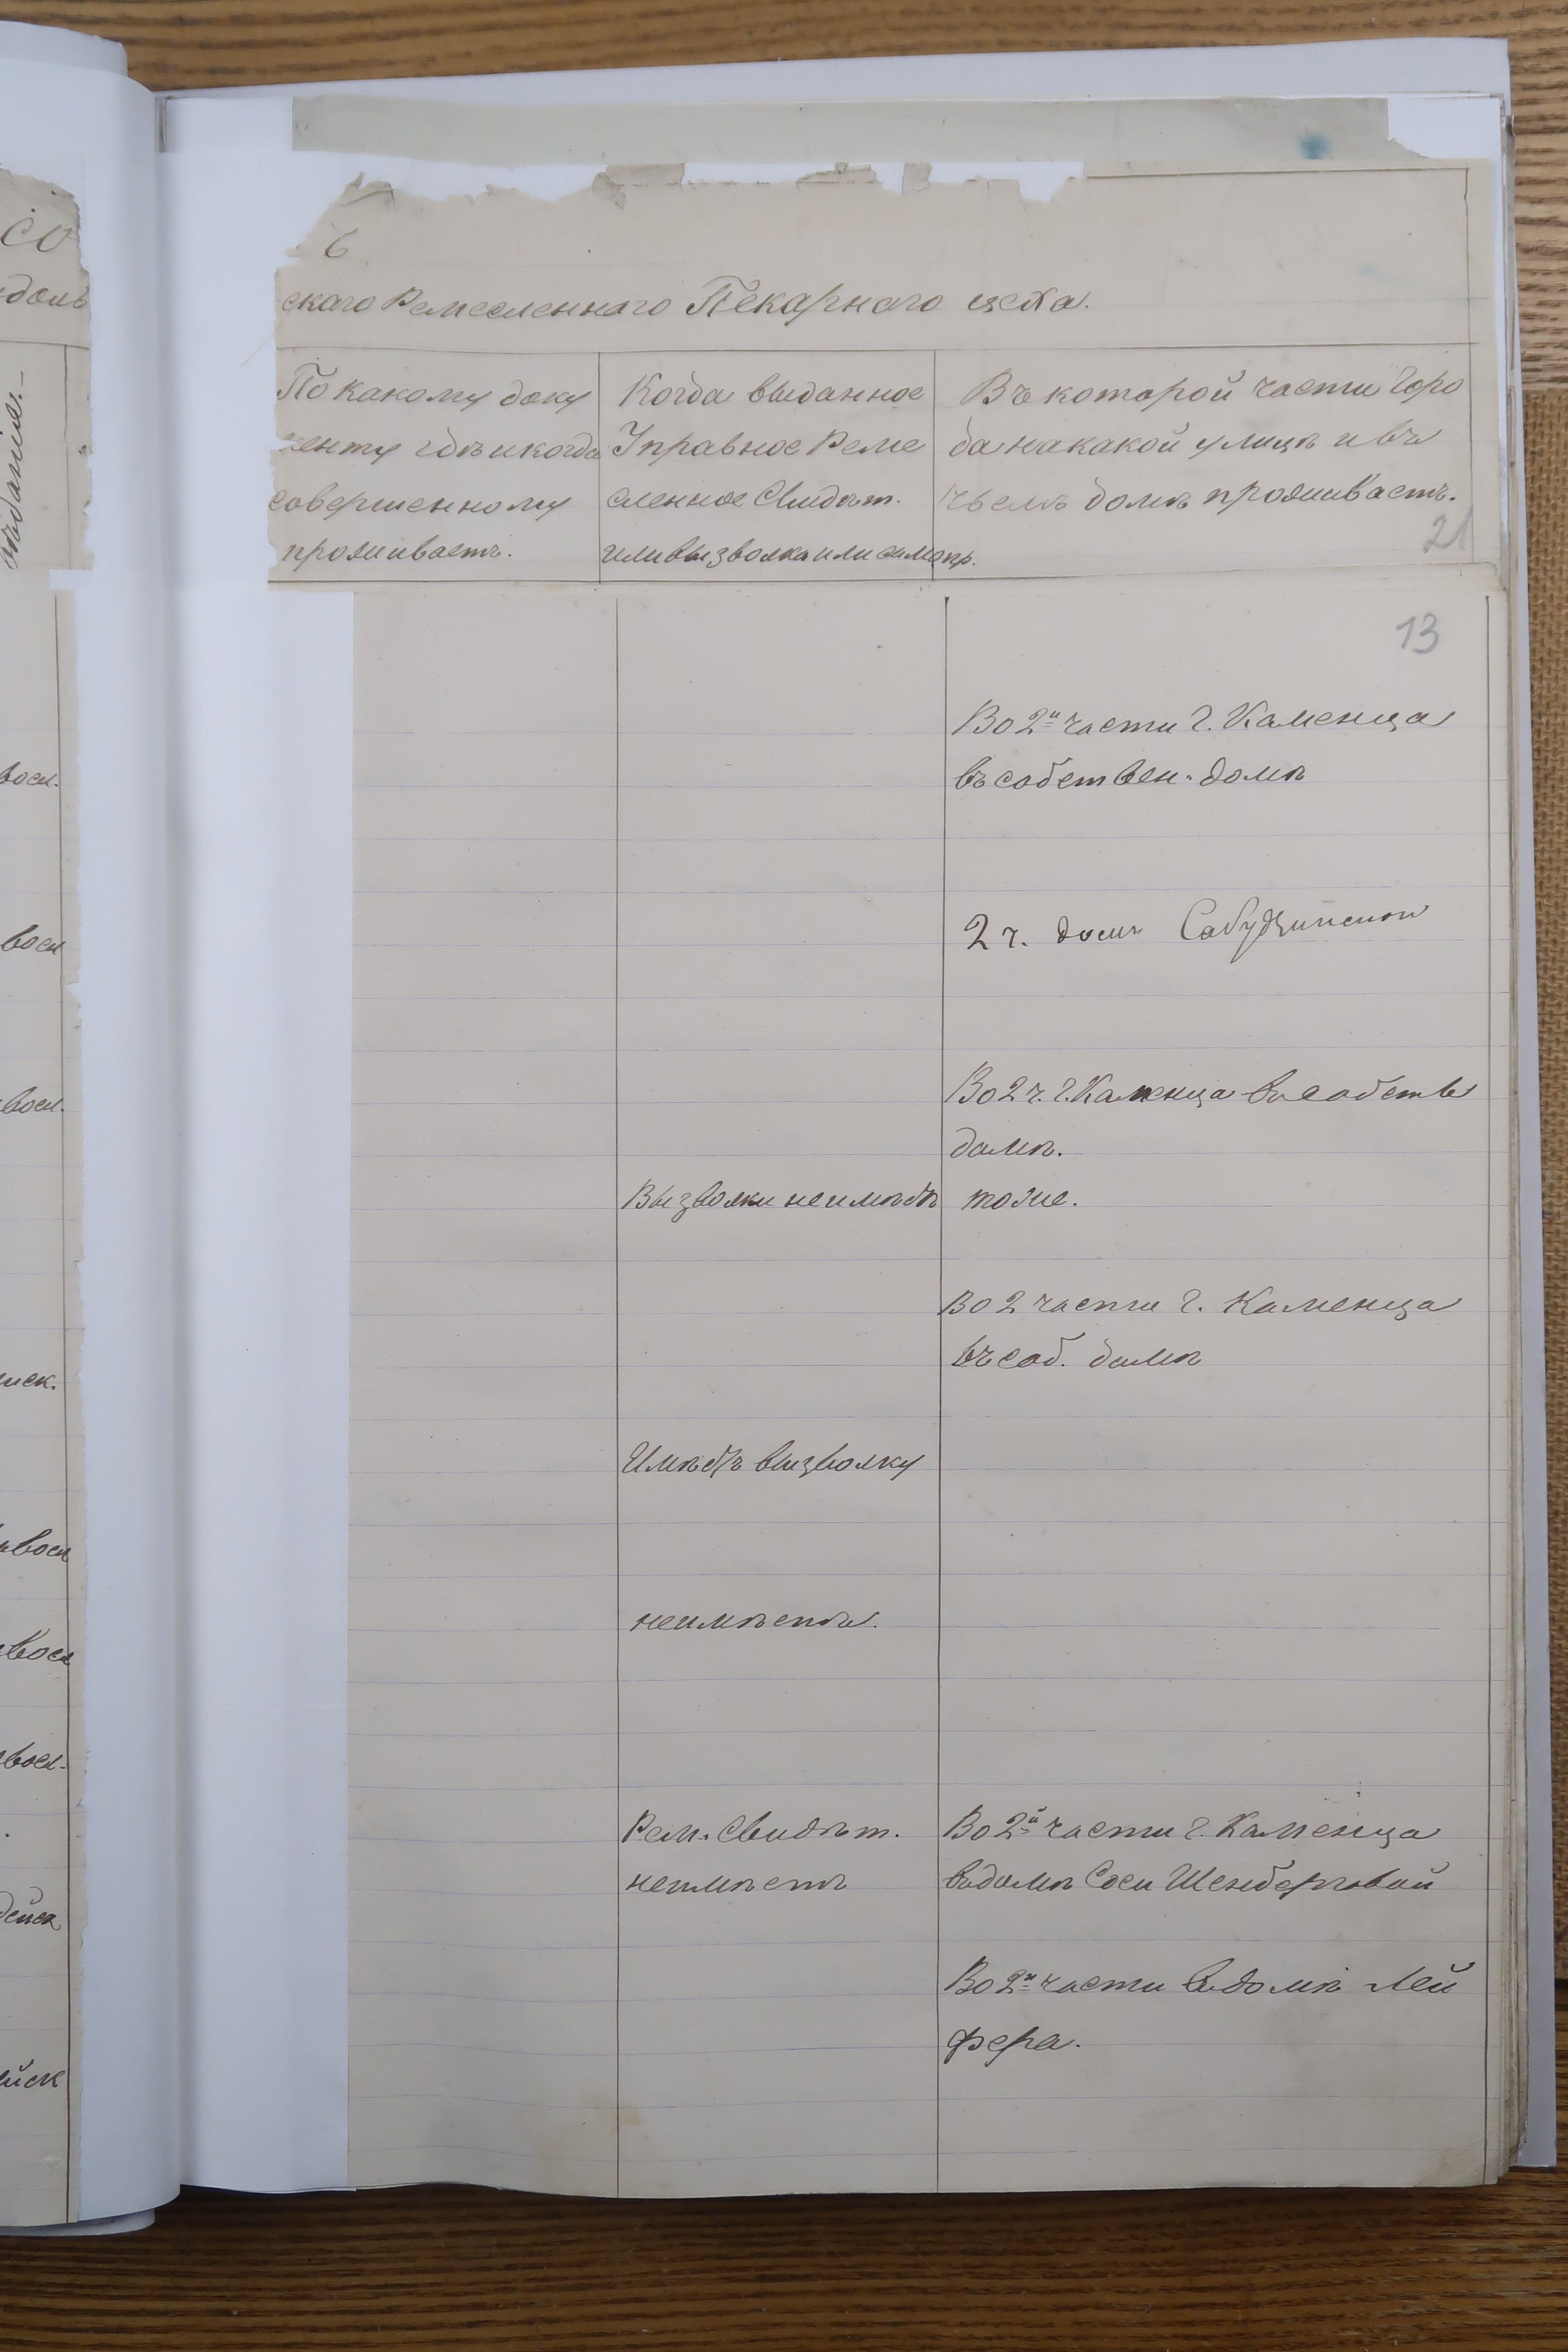 со
ъ
скаго Ремесленнаго Пекарнаго цеха.
По какому доку
менту гдѣ и когда
совершенному
проживаетъ.
Когда выданное
Управное Реме
сленное Свидѣт.
или вызволка или
Въ которой части Горо
да на какой улицѣ и въ
чьемъ домѣ проживаетъ.
21
13
Во 2й части г. Каменца
въ собствен. домѣ
2 ч. домъ
Во 2 ч. г. Каменца въ собств
домѣ.
Вызволки неимѣетъ тоже.
Во 2 части г. Каменца
въ соб. домѣ
Имѣетъ вызволку
неимѣетъ.
Рем. Свидѣт.
неимѣетъ
Во 2й части г. Каменца
въ домѣ Соси Шенберговой
Во 2й части въ домѣ Лей
фера.